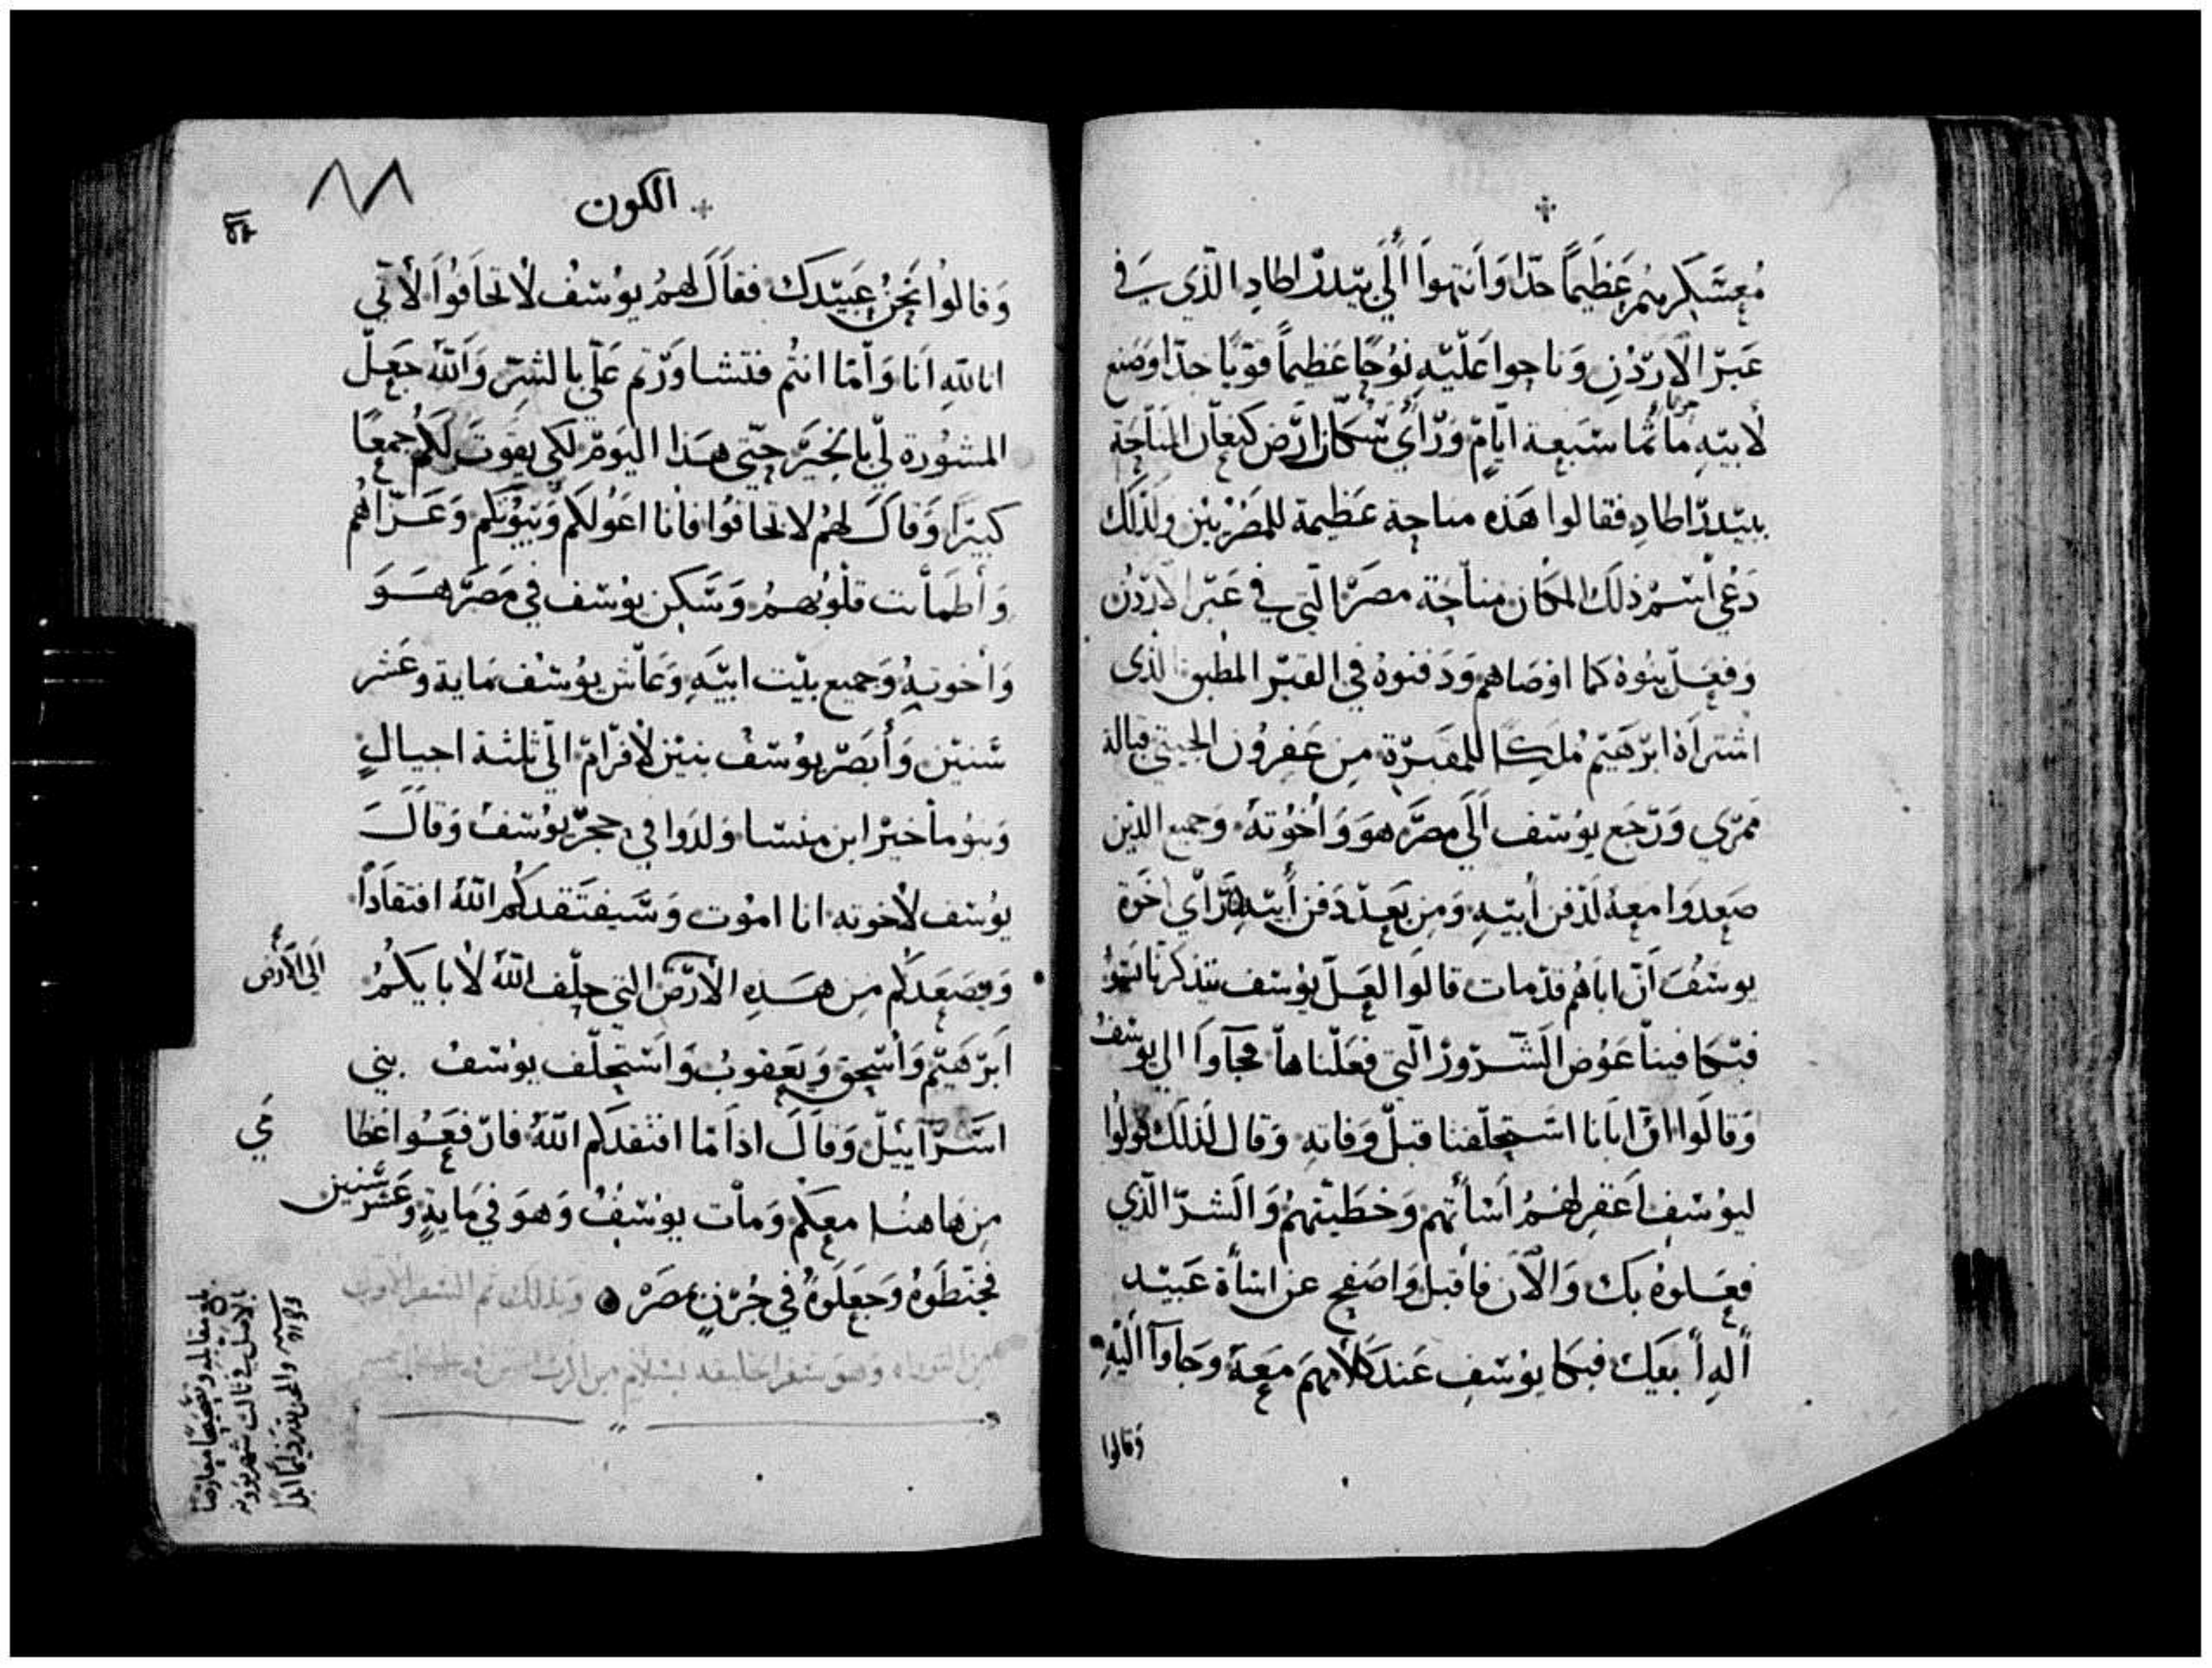 مُعسَكرهُم عَظيمًا جدًا وَانتهوا الَي بيدر اطادِ الذي في
عَبر الاردُن وَناحوا عَليه نوُحًا عَظيمًا قويا جدًا وصَنع
لابيه مأتما سَبعة ايام وَرأي سُكان ارض كنعان المناحَة
ببيدر اطادِ فقالوا هَذه مناحة عَظيمة للمصريين ولذلك
دَعي اسم ذلك المكان مناحَة مصر التي في عَبر الاردُن
وَفعَل بنوهُ كما اوصَاهم وَدَفنوهُ في القبر المطبق الذي
اشتراهُ ابرَهيم مُلكًا للمقبرة من عَفرُون الحيتي قبالة
ممري وَرَجَع يوُسَف اَلَي مصر هوَ وَاخُوته وَجميع الذين
صَعدوا معهُ لدَفن أبيهِ وَمن بَعد دَفن أبيه رَأي اخوة
يوسُفَ اَن اباهُم قد مات قالوا لعَل يوُسَف يتذكرنا بسُو
فيكافينا عَوُض الشرور التي فعَلناها فجآوا الي يوسف
وَقالوا ان ابَانا استحلفنا قبل وَفاته وَقال لذلك قولوا
ليوُسُف اَغفر لهُم اَسَأتهم وَخطيتهُم وَالشر الذي
فعَلوهُ بك وَالان فاَقبل وَاصَفح عن اسَأة عَبيد
اله ابيك فبكا يوُسَف عَند كلامهم مَعهَ وَجاوآ اليهِ
وَقالوا
الكون
٨٨
وَقالوُا نَحنُ عَبيدك فقالَ لهمُ يوُسُف لا تخافوُا لأني
انا للهِ اَنا وَاما انتم فتشاورتم عَلي بالشر وَالله جَعل
المشوُرة لي بالخير حتي هَذا اليوم لكي يقوتَ لكم جمعًا
كبيرًا وَقالَ لهُم لا تخافوُا فانا اعَولكم وَبيوُتكم وَعَزاهُم
وَأطمأنت قلوُبهمُ وَسَكن يوُسَف في مَصر هَوَ
وَأخوتهِ وَجميع بيت ابيَه وَعَاش يوُسُف مَاية وعَشر
سَنين وَأبصَر يوُسَف بنين لأفرام الي ثلثة اجيالٍ
وَبنو ماخير ابن منسا وَلدوا في حجر يوُسَف وَقالَ
يوُسَف لأخوته انا اموُت وَسَيفتقدكُم اللهُ افتقادًا
وَيصَعَدكُم من هَذهِ الاَرض التي حلَف اللهُ لابايكُمُ
اَلي الأرض
اَبرَهيم وَاسَحق وَيَعقوبُ وَاستحَلف يوُسَفُ بني
اسَرآييل وَقالَ اذا مَا افتقدكم اللهُ فارفعَوا عَظامي
من هَاهنا معكم وَمات يوُسُفُ وَهوَ في مَايةٍ وَعَشر سَنين
فحَنطوهُ وَجَعلوهُ في جُرنٍ بمصَر وَبذلك تم السَفر الاول
من التوراه وَهوَ سَفر الخليقه بسَلام من الرب
بلغ مقابله وتصَحيحًا
بالاصل في ثالث شهر